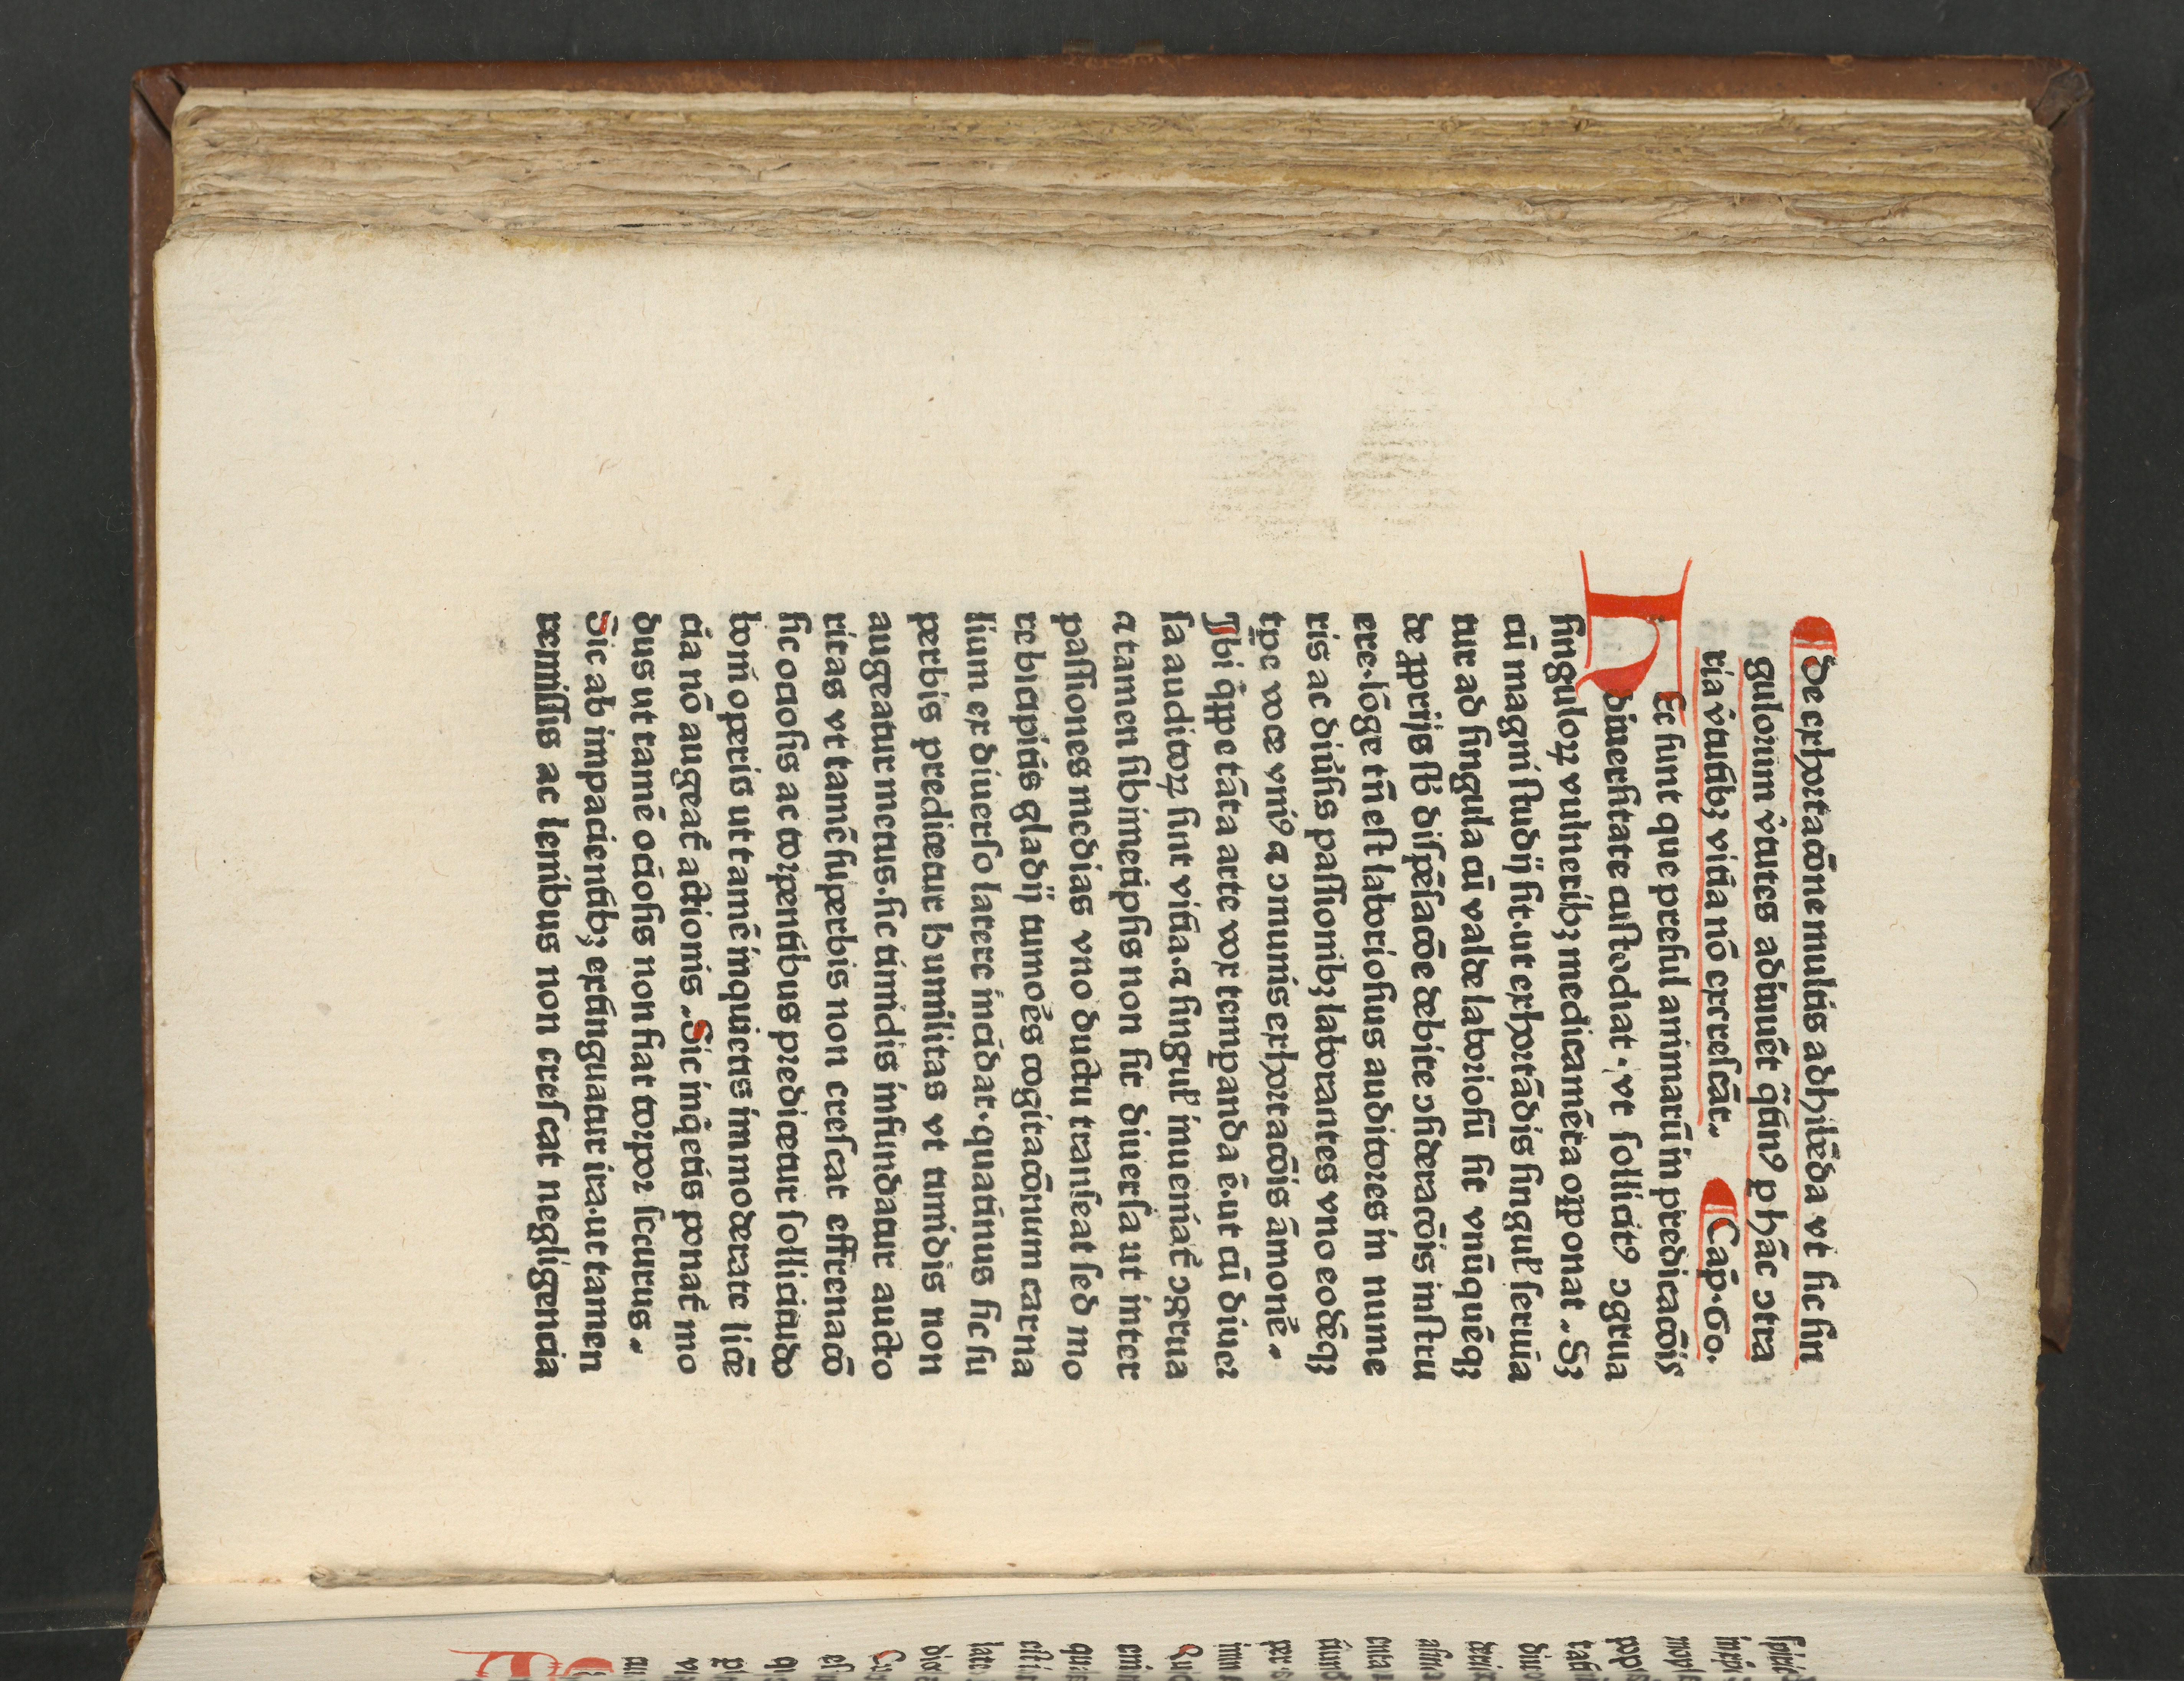 De exhortacōne multis adhibēda vt sic sin
guloꝝum v̓tutes adiuuēt q̄tinꝯ p hāc ɔtra
ria v̓tutibꝫ vitia nō excrescāt. Cap̄. 60.
HEc sunt que presul animarū in predicacōis
diuersitate custodiat. vt sollicitꝯ ɔgrua
singuloꝝ vulneribꝫ medicamēta opponat. Sꝫ
cū magni studij sit. ut exhortādis singul̓ seruia
tur ad singula cū valde laboriosū sit vnūquēqꝫ
de ꝓprijs sb̓ dispēsacōe debite ɔsideracōis instru
ere. lōge tn̄ est laboriosius auditores in nume
ris ac diu̓sis passionibꝫ laborantes vno eodēqꝫ
tp̄e voce vniꝯ ⁊ ɔmunis exhortacōis āmonē.
Ibi q̄ppe tāta arte vox temꝑanda ē. ut cū diuer
sa auditoꝝ sint vitia. ⁊ singul̓ inueniat̓ ɔgrua
⁊ tamen sibimetipsis non sit diuersa ut inter
passiones medias vno ductu transeat sed mo
re bicipitis gladij tumoēs cogitacōnum carna
lium ex diuerso latere incidat. quatinus sic su
perbis predicetur humilitas vt timidis non
augeatur metus. sic timidis infundatur aucto
ritas vt tamē superbis non crescat effrenacō
sic ociosis ac torpentibus predicetur sollicitudo
boni operis ut tamē inquietis immoderate licē
cia nō augeat̓ actionis. Sic inq̄etis ponat̓ mo
dus ut tamē ociosis non fiat torpor securus.
Sic ab impacientibꝫ extinguatur ira. ut tamen
remissis ac lenibus non crescat negligencia